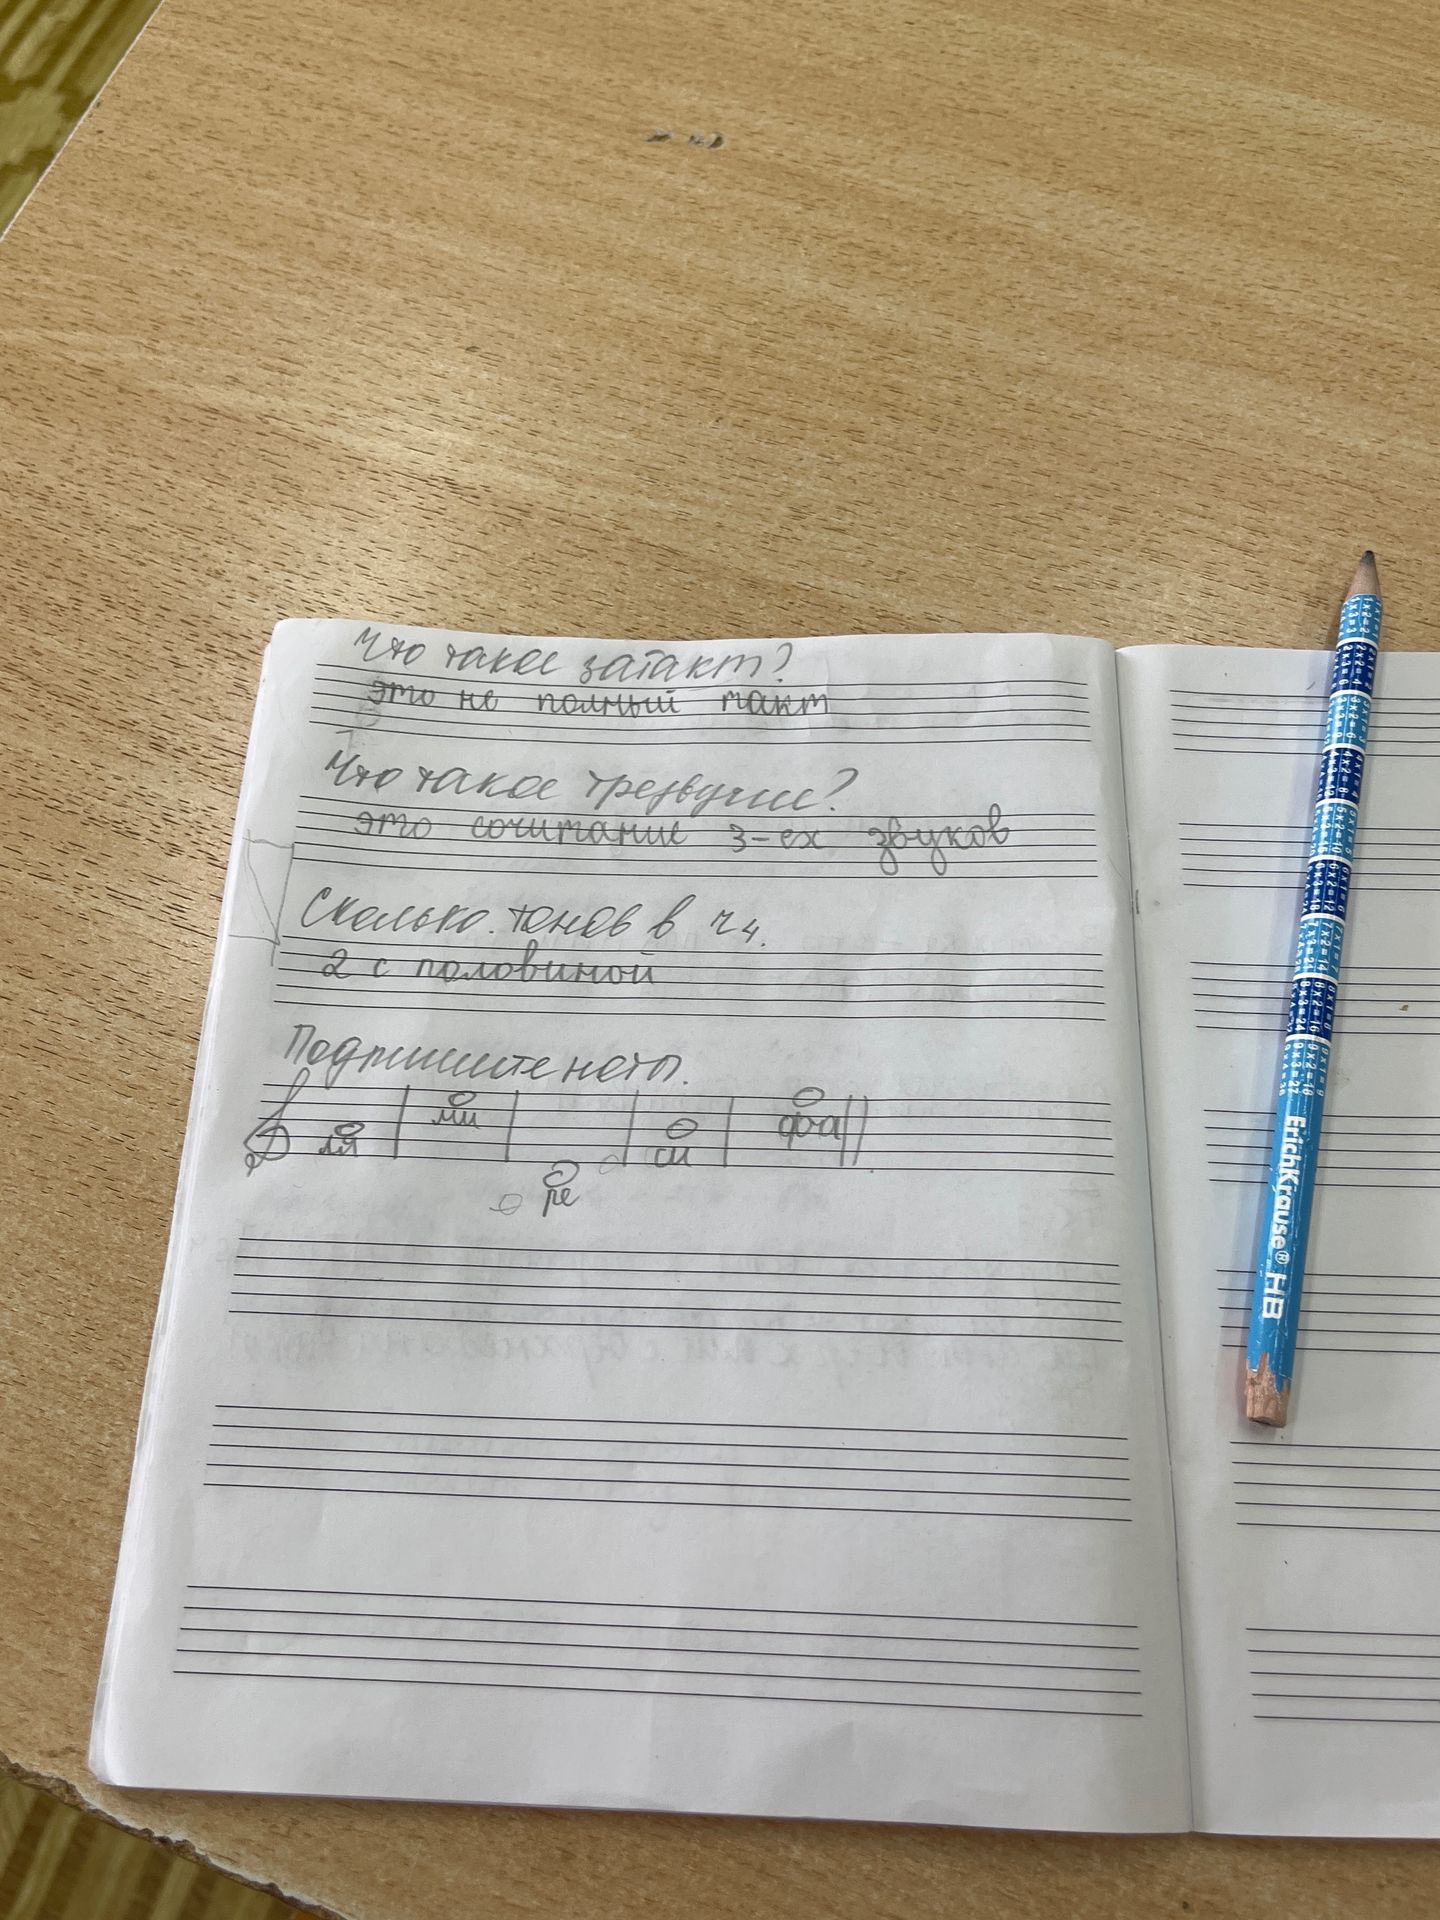 Что такое затакт?
это не полный такт
Что такое трезвучие?
это сочитание 3-ех звуков
Сколько тонов в ч4.
2 с половиной
Подпишите ноты.
ля ми ре си фа
ErichKrause® HB